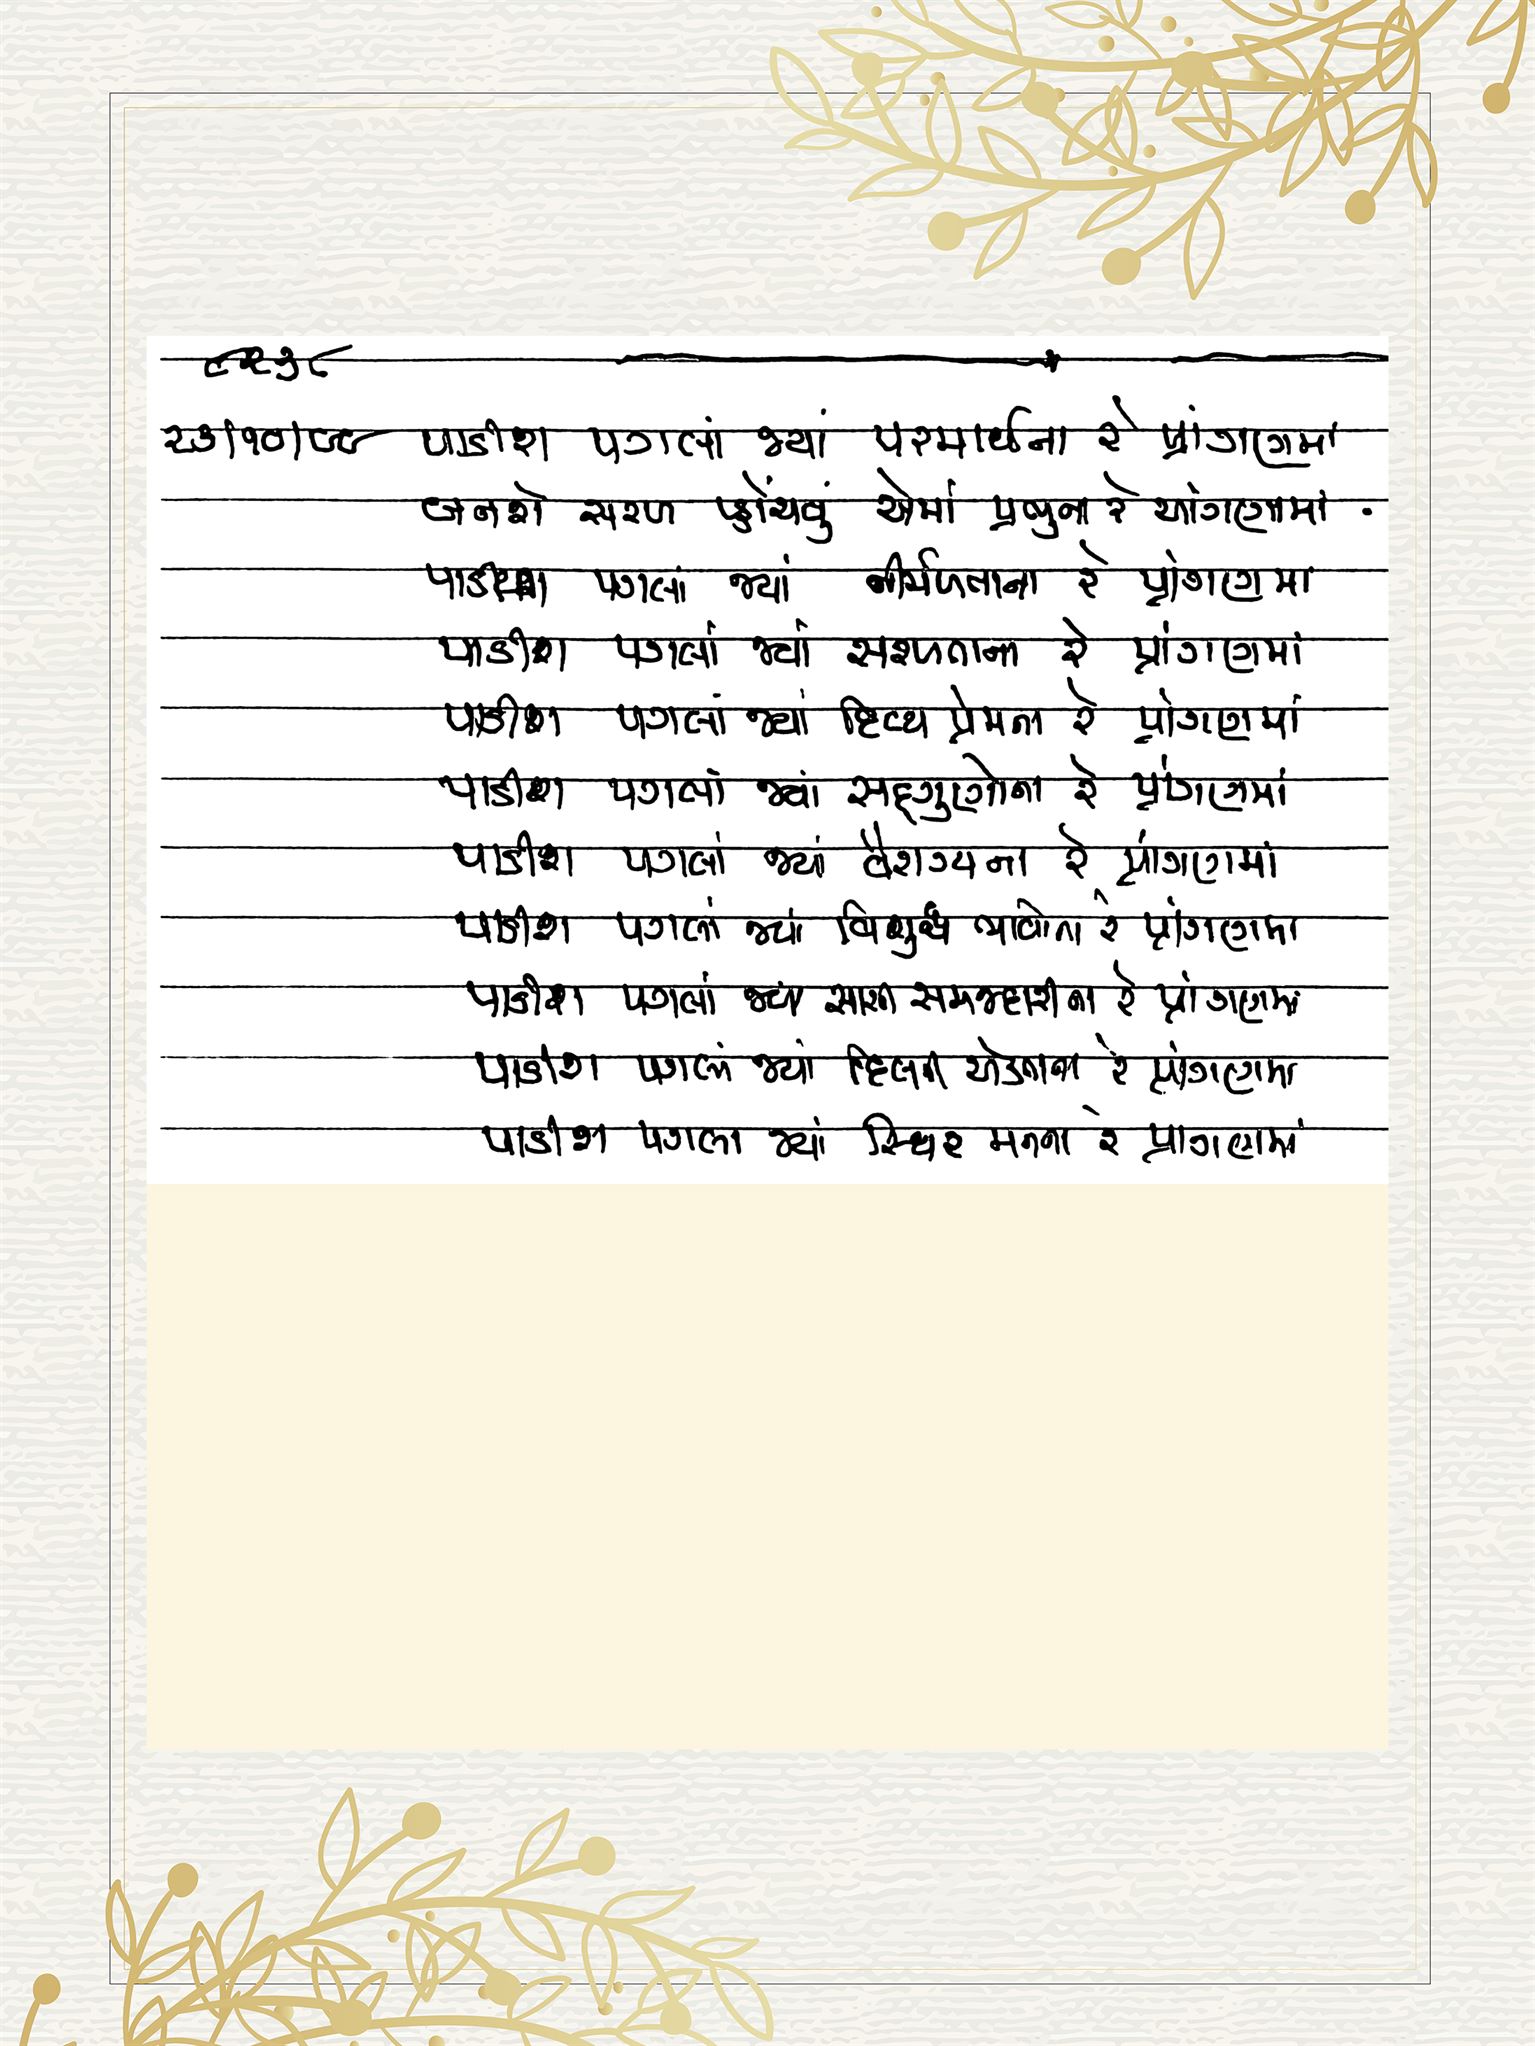 ૮૨૩૮
૨૭/૧૦/૯૯ પાડીશ પગલાં જ્યાં પરમાર્થના રે પ્રાંગણમાં
બનશે સરળ પ્હોંચવું એમાં પ્રભુના રે આંગણામાં .
પાડીશ પગલાં જ્યાં નીર્મળતાના રે પ્રાંગણમાં
પાડીશ પગલાં જ્યાં સરળતાના રે પ્રાંગણમાં
પાડીશ પગલાં જ્યાં દિવ્ય પ્રેમના રે પ્રાંગણમાં
પાડીશ પગલાં જ્યાં સદ્ગુણોના રે પ્રાંગણમાં
પાડીશ પગલાં જ્યાં વૈરાગ્યના રે પ્રાંગણમાં
પાડીશ પગલાં જ્યાં વિશુધ્ધ ભાવોના રે પ્રાંગણમાં
પાડીશ પગલાં જ્યાં સાચી સમજદારીના રે પ્રાંગણમાં
પાડીશ પગલાં જ્યાં દિલની એકતાના રે પ્રાંગણમાં
પાડીશ પગલા જ્યાં સ્થિર મનના રે પ્રાંગણમાં